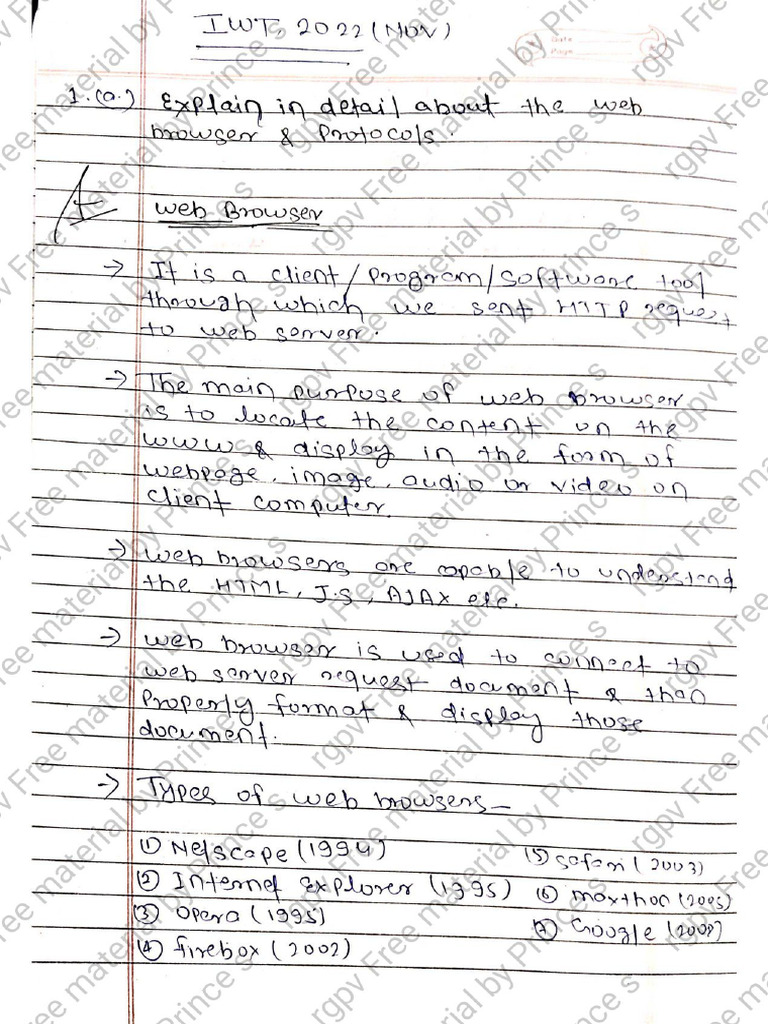 IWT, 2022 (NOV)
1.(a.) Explain in detail about the web
browser & Protocols.
A
Web Browser
→ It is a client/program/software tool
through which we sent HTTP request
to web server.
→ The main purpose of web browser
is to locate the content on the
WWW & display in the form of
webpage, image, audio or video on
client computer.
→ Web browsers are capable to understand
the HTML, J.S, AJAX etc.
→ Web browser is used to connect to
web server request document & than
properly format & display those
document.
→ Types of web browsers—
① Netscape (1994)
② Internet Explorer (1995)
③ Opera (1995)
④ firebox (2002)
⑤ Safari (2003)
⑥ Maxthon (2005)
⑦ Google (2008)
rgpv Free material by Prince s